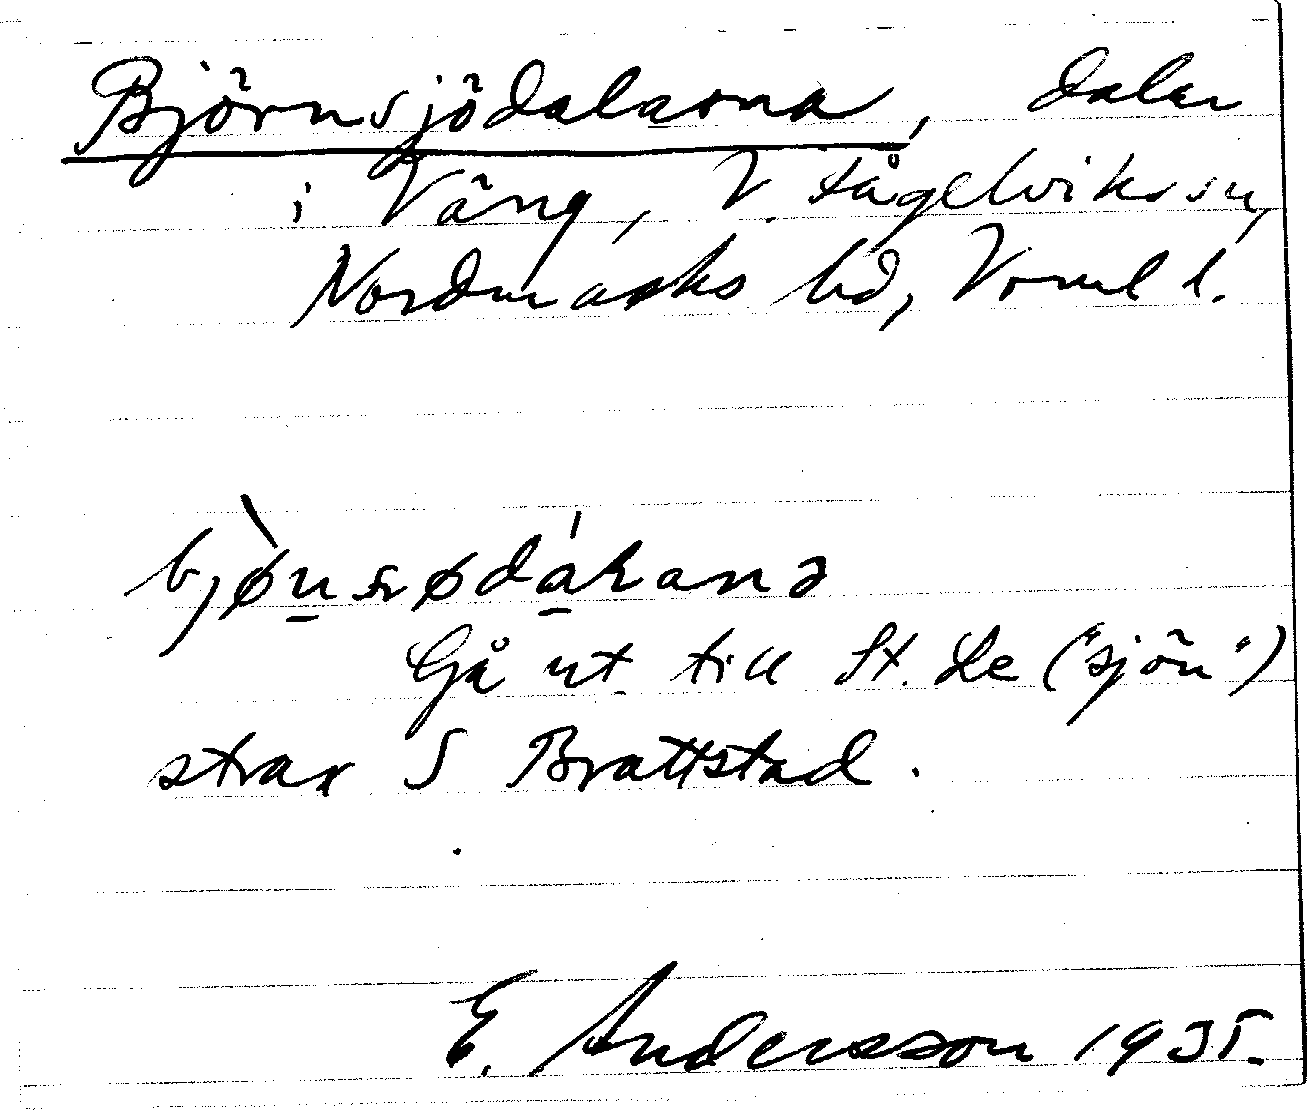 Björnsjödalarna, dalar
i Väng, V. Fågelviks sn,
Nordmarks hd, Vrml l.
Gå ut till St. Le ("sjön")
strax S Brattstad.
E. Andersson 1935.